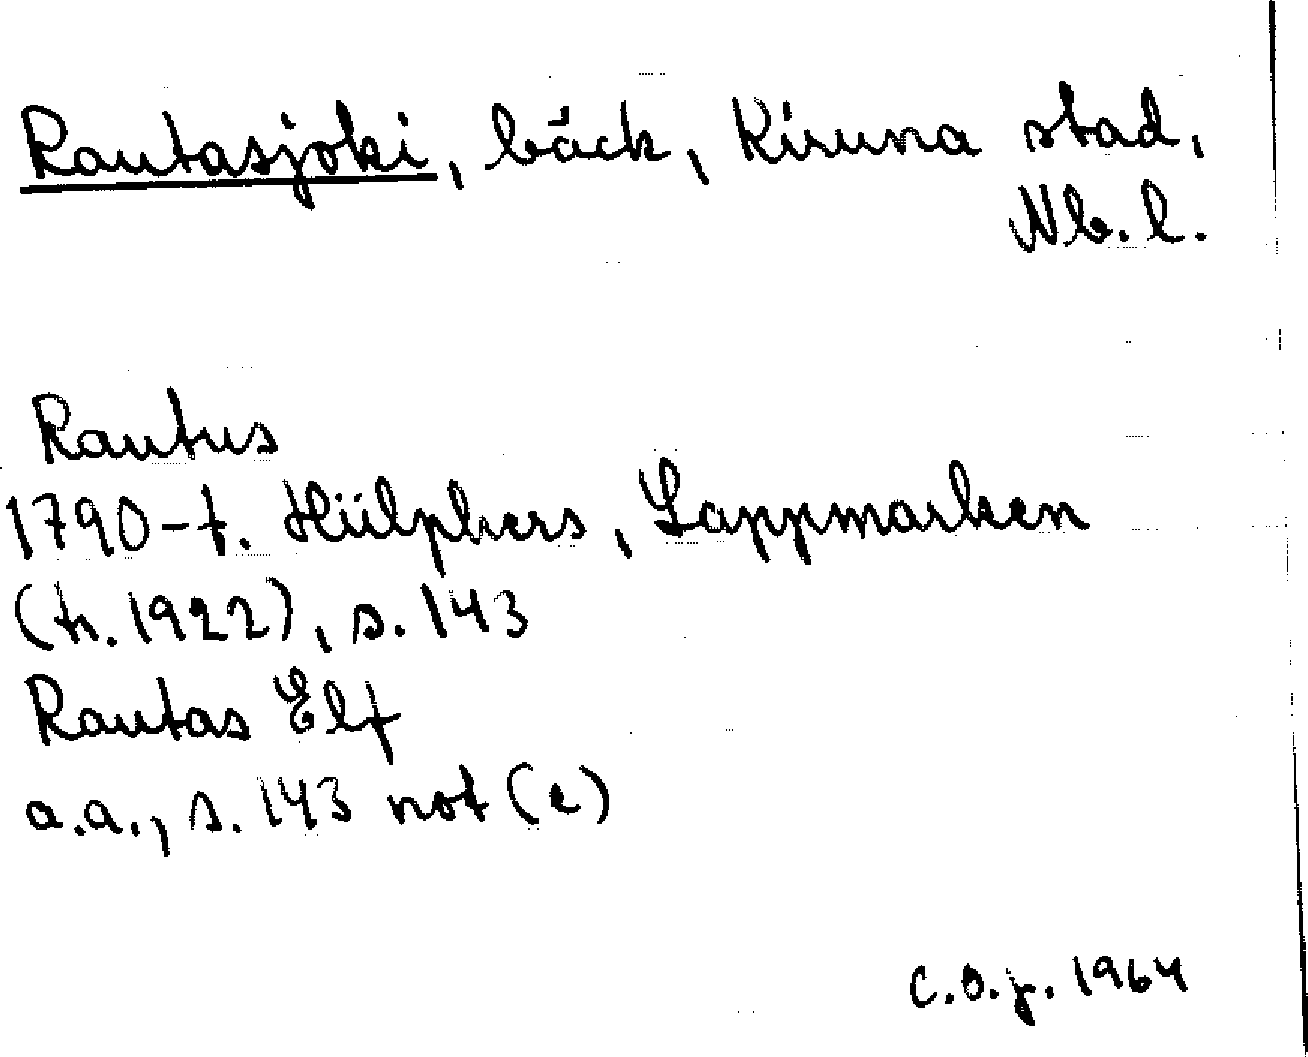 Rautasjoki, bäck, Kiruna stad,
Nb. l.
Rautus
1790-t. Hülphers, Lappmarken
(tr. 1922), s. 143
Rautas Elf
a.a., s. 143 not (e)
C.O.j. 1964